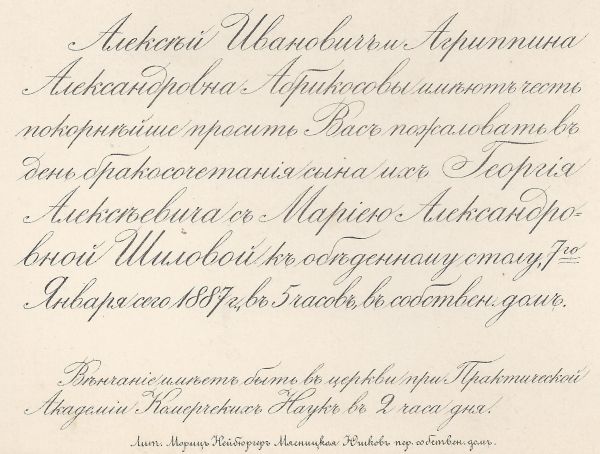 Алексѣй Ивановичъ и Агриппина
Александровна Абрикосовы имѣютъ честь
покорнѣйше просить Васъ пожаловать въ
день бракосочетанія сына ихъ Георгія
Алексѣевича съ Маріею Александро-
вной Шиловой къ обѣденному столу, 7го
Января сего 1887 г., въ 5 часовъ, въ собствен. домѣ.
Вѣнчаніе имѣетъ быть въ церкви при Практической
Академіи Комерческихъ Наукъ въ 2 часа дня.
Лит. Морицъ Нейбюргеръ Мясницкая Юшковъ пер. собствен. домъ.